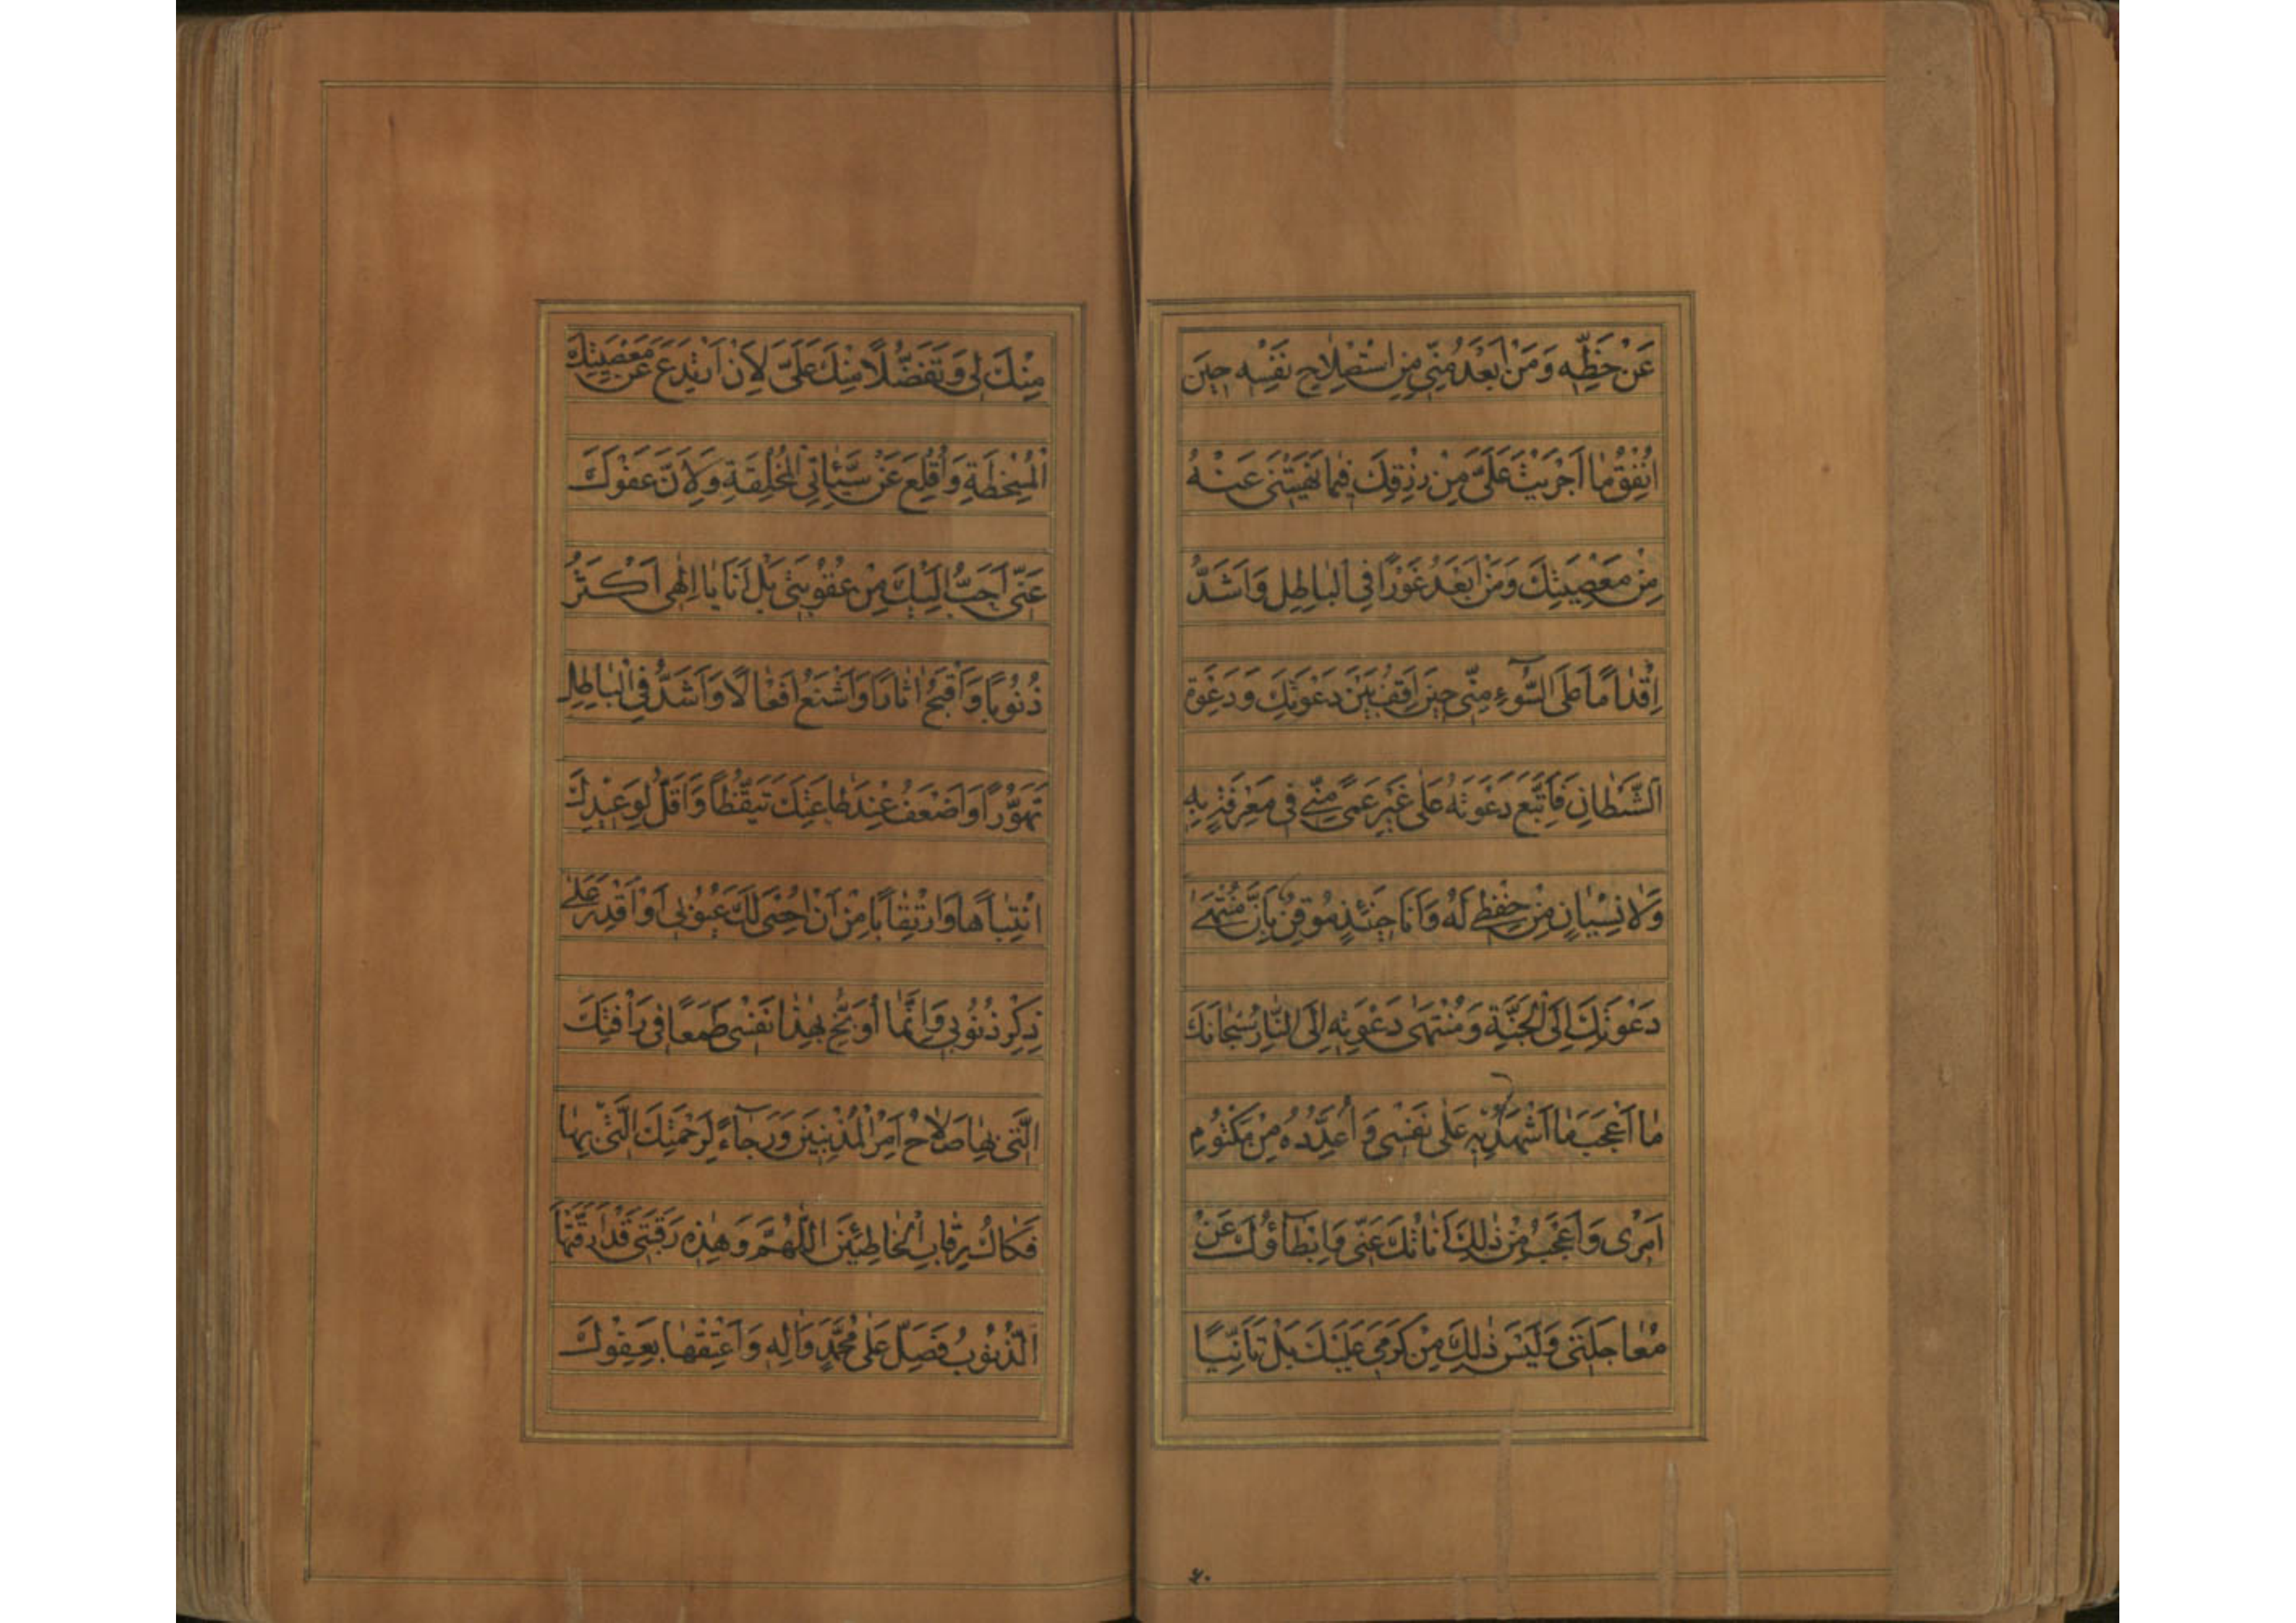 عَنْ حَظِّهِ وَمَنْ اَبْعَدُ مِنّي مِنِ اسْتِصْلاحِ نَفْسِهِ حينَ
اُنْفِقُ ما اَجْرَيْتَ عَلَيَّ مِنْ رِزْقِكَ فيما نَهَيْتَني عَنْهُ
مِنْ مَعْصِيَتِكَ وَمَنْ اَبْعَدُ غَوْرًا فِي الْباطِلِ وَاَشَدُّ
اِقْدامًا عَلَى السُّوءِ مِنّي حينَ اَقِفُ بَيْنَ دَعْوَتِكَ وَدَعْوَةِ
الشَّيْطانِ فَاَتَّبِعُ دَعْوَتَهُ عَلى غَيْرِ عَمًى مِنّي في مَعْرِفَةٍ بِهِ
وَلا نِسْيانٍ مِنْ حِفْظي لَهُ وَاَنَا حينَئِذٍ مُوقِنٌ بِاَنَّ مُنْتَهى
دَعْوَتِكَ اِلَى الْجَنَّةِ وَمُنْتَهى دَعْوَتِهِ اِلَى النّارِ سُبْحانَكَ
ما اَعْجَبَ ما اَشْهَدُ بِهِ عَلى نَفْسي وَاُعَدِّدُهُ مِنْ مَكْتُومِ
اَمْري وَاَعْجَبُ مِنْ ذلِكَ اَناتُكَ عَنّي وَاِبْطاؤُكَ عَنْ
مُعاجَلَتي وَلَيْسَ ذلِكَ مِنْ كَرَمي عَلَيْكَ بَلْ تَاَنِّيًا
مِنْكَ لي وَتَفَضُّلًا مِنْكَ عَلَيَّ لِاَنْ اَرْتَدِعَ عَنْ مَعْصِيَتِكَ
الْمُسْخِطَةِ وَاُقْلِعَ عَنْ سَيِّئاتِي الْمُخْلِقَةِ وَلِاَنَّ عَفْوَكَ
عَنّي اَحَبُّ اِلَيْكَ مِنْ عُقُوبَتي بَلْ اَنَا يا اِلهي اَكْثَرُ
ذُنُوبًا وَاَقْبَحُ اثارًا وَاَشْنَعُ اَفْعالًا وَاَشَدُّ فِي الْباطِلِ
تَهَوُّرًا وَاَضْعَفُ عِنْدَ طاعَتِكَ تَيَقُّظًا وَاَقَلُّ لِوَعيدِكَ
انْتِباهًا وَارْتِقابًا مِنْ اَنْ اُحْصِيَ لَكَ عُيُوبي اَوْ اَقْدِرَ عَلى
ذِكْرِ ذُنُوبي وَاِنَّما اُوَبِّخُ بِهذا نَفْسي طَمَعًا في رَاْفَتِكَ
الَّتي بِها صَلاحُ اَمْرِ الْمُذْنِبينَ وَرَجاءً لِرَحْمَتِكَ الَّتي بِها
فَكاكُ رِقابِ الْخاطِئينَ اللّهُمَّ وَهذِهِ رَقَبَتي قَدْ اَرَقَّتْها
الذُّنُوبُ فَصَلِّ عَلى مُحَمَّدٍ وَالِهِ وَاَعْتِقْها بِعَفْوِكَ